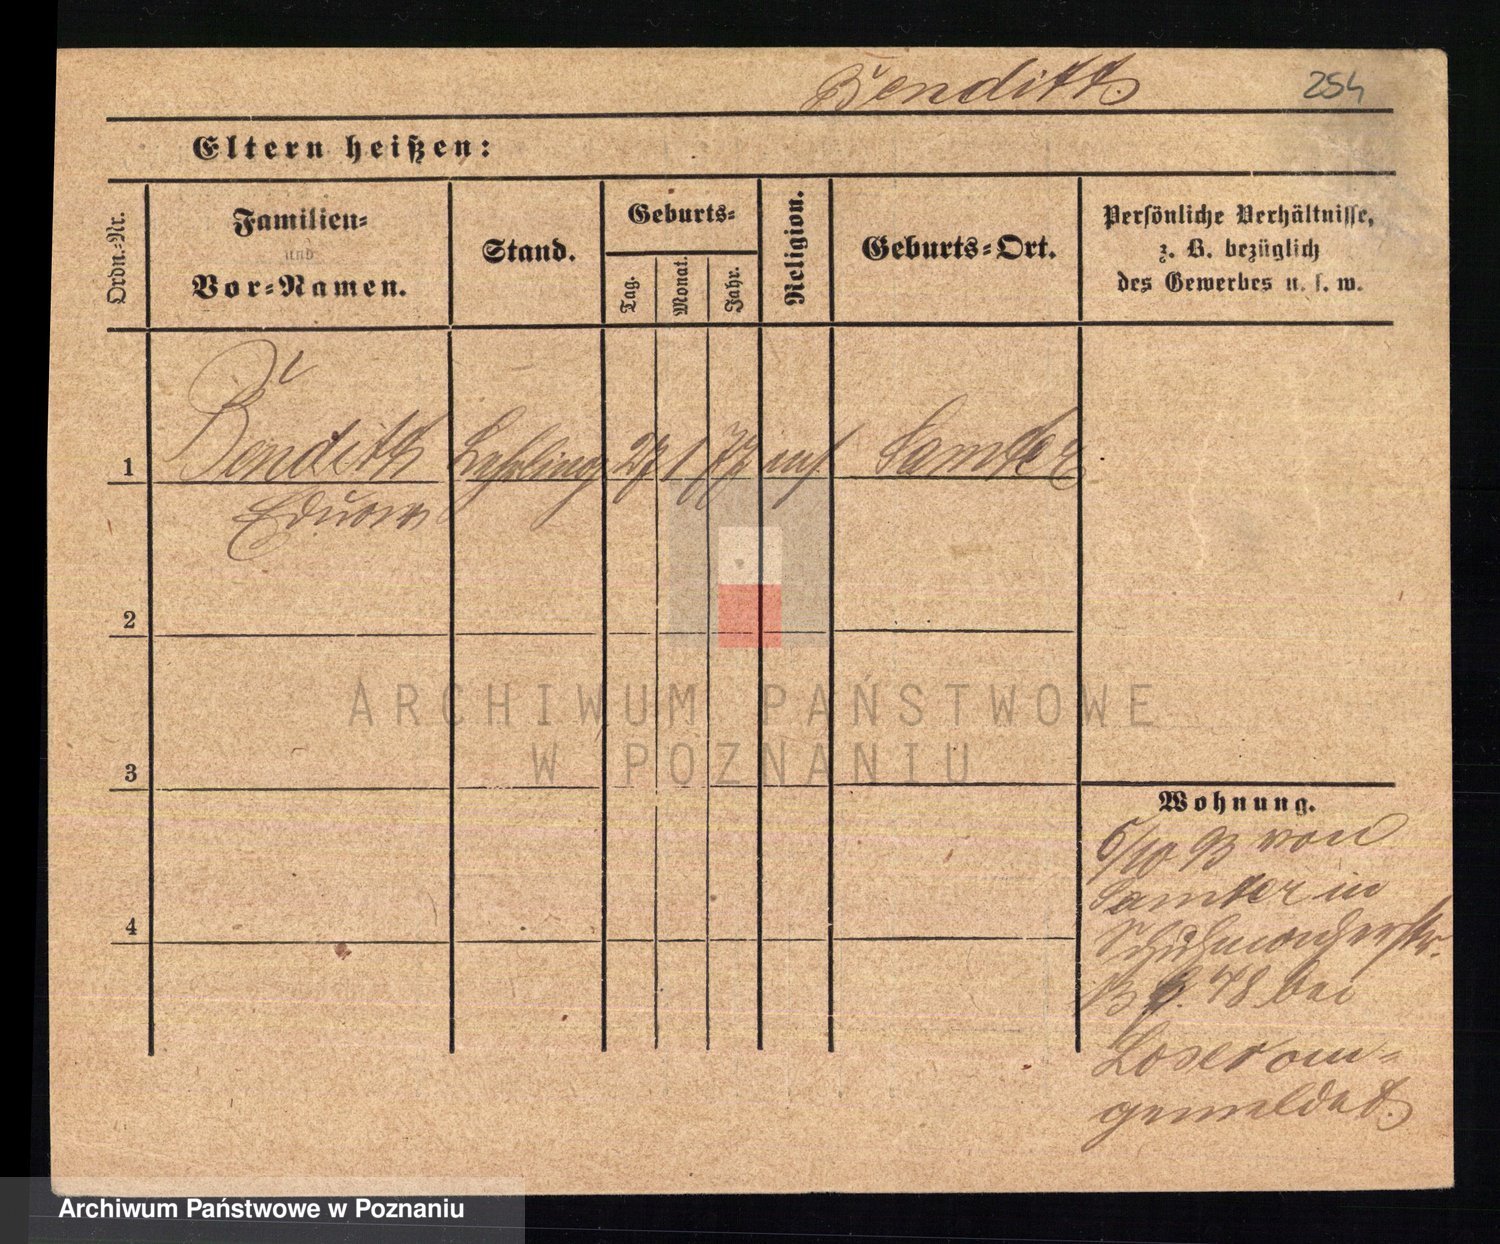 Benditt
254
Eltern heißen:
Ordn.-Nr.
Familien-
und
Vor-Namen.
Stand.
Geburts-
Tag.
Monat.
Jahr.
Religion.
Geburts-Ort.
Persönliche Verhältnisse,
z. B. bezüglich
des Gewerbes u. s. w.
1 Benditt Lehrling 27 1 77 Samter
Eduard
2
3
4
Wohnung.
6/10 93 von
Samter in
Schuhmacherstr.
78 bei
Loser an-
gemeldet.
ARCHIWUM PAŃSTWOWE
W POZNANIU
Archiwum Państwowe w Poznaniu